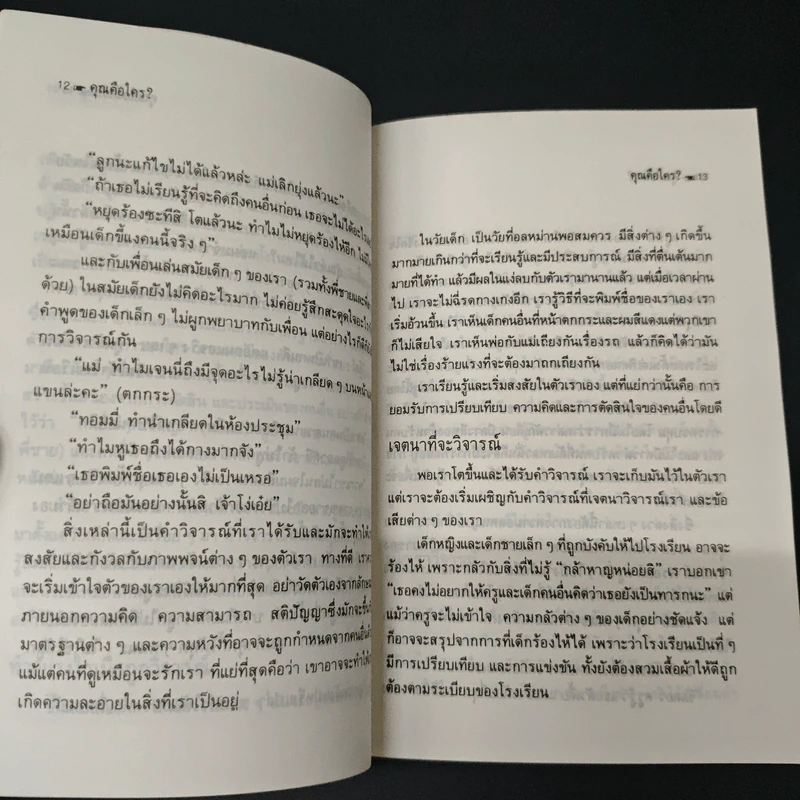 12 คุณคือใคร?
"ลูกนะแก้ไขไม่ได้แล้วหล่ะ แม่เลิกยุ่งแล้วนะ"
"ถ้าเธอไม่เรียนรู้ที่จะคิดถึงคนอื่นก่อน เธอจะไม่ได้อะไร
"หยุดร้องซะทีสิ โตแล้วนะ ทำไมไม่หยุดร้องไห้อีก
เหมือนเด็กขี้แงคนนี้จริง ๆ"
และกับเพื่อนเล่นสมัยเด็ก ๆ ของเรา (รวมทั้งพี่ชายและ
ด้วย) ในสมัยเด็กยังไม่คิดอะไรมาก ไม่ค่อยรู้สึกสะดุดใจอะไร
คำพูดของเด็กเล็ก ๆ ไม่ผูกพยาบาทกับเพื่อน แต่อย่างไรก็
การวิจารณ์กัน
"แม่ ทำไมเจนนี่ถึงมีจุดอะไรไม่รู้น่าเกลียด ๆ บนหน้า
แขนล่ะคะ" (ตกกระ)
"ทอมมี่ ทำน่าเกลียดในห้องประชุม"
"ทำไมหูเธอถึงได้กางมากจัง"
"เธอพิมพ์ชื่อเธอเองไม่เป็นเหรอ"
"อย่าถือมันอย่างนั้นสิ เจ้าโง่เอ๋ย"
สิ่งเหล่านี้เป็นคำวิจารณ์ที่เราได้รับและมักจะทำให้
สงสัยและกังวลกับภาพพจน์ต่าง ๆ ของตัวเรา ทางที่ดี เรา
จะเริ่มเข้าใจตัวของเราเองให้มากที่สุด อย่าวัดตัวเองจาก
ภายนอกความคิด ความสามารถ สติปัญญาซึ่งมักจะขึ้น
มาตรฐานต่าง ๆ และความหวังที่อาจจะถูกกำหนดจากคนอื่น
แม้แต่คนที่ดูเหมือนจะรักเรา ที่แย่ที่สุดคือว่า เขาอาจจะทำให้
เกิดความละอายในสิ่งที่เราเป็นอยู่
คุณคือใคร? 13
ในวัยเด็ก เป็นวัยที่อลหม่านพอสมควร มีสิ่งต่าง ๆ เกิดขึ้น
มากมายเกินกว่าที่จะเรียนรู้และมีประสบการณ์ มีสิ่งที่ตื่นเต้นมาก
มายที่ได้ทำ แล้วมีผลในแง่ลบกับตัวเรามานานแล้ว แต่เมื่อเวลาผ่าน
ไป เราจะไม่ฉี่รดกางเกงอีก เรารู้วิธีที่จะพิมพ์ชื่อของเราเอง เรา
เริ่มอ้วนขึ้น เราเห็นเด็กคนอื่นที่หน้าตกกระและผมสีแดงแต่พวกเขา
ก็ไม่เสียใจ เราเห็นพ่อกับแม่เถียงกันเรื่องรถ แล้วก็คิดได้ว่ามัน
ไม่ใช่เรื่องร้ายแรงที่จะต้องมาถกเถียงกัน
เราเรียนรู้และเริ่มสงสัยในตัวเราเอง แต่ที่แย่กว่านั้นคือ การ
ยอมรับการเปรียบเทียบ ความคิดและการตัดสินใจของคนอื่นโดยดี
เจตนาที่จะวิจารณ์
พอเราโตขึ้นและได้รับคำวิจารณ์ เราจะเก็บมันไว้ในตัวเรา
แต่เราจะต้องเริ่มเผชิญกับคำวิจารณ์ที่เจตนาวิจารณ์เรา และข้อ
เสียต่าง ๆ ของเรา
เด็กหญิงและเด็กชายเล็ก ๆ ที่ถูกบังคับให้ไปโรงเรียน อาจจะ
ร้องไห้ เพราะกลัวกับสิ่งที่ไม่รู้ "กล้าหาญหน่อยสิ" เราบอกเขา
"เธอคงไม่อยากให้ครูและเด็กคนอื่นคิดว่าเธอยังเป็นทารกนะ" แต่
แม้ว่าครูจะไม่เข้าใจ ความกลัวต่าง ๆ ของเด็กอย่างชัดแจ้ง แต่
ก็อาจจะสรุปจากการที่เด็กร้องไห้ได้ เพราะว่าโรงเรียนเป็นที่ ๆ
มีการเปรียบเทียบ และการแข่งขัน ทั้งยังต้องสวมเสื้อผ้าให้ดีถูก
ต้องตามระเบียบของโรงเรียน